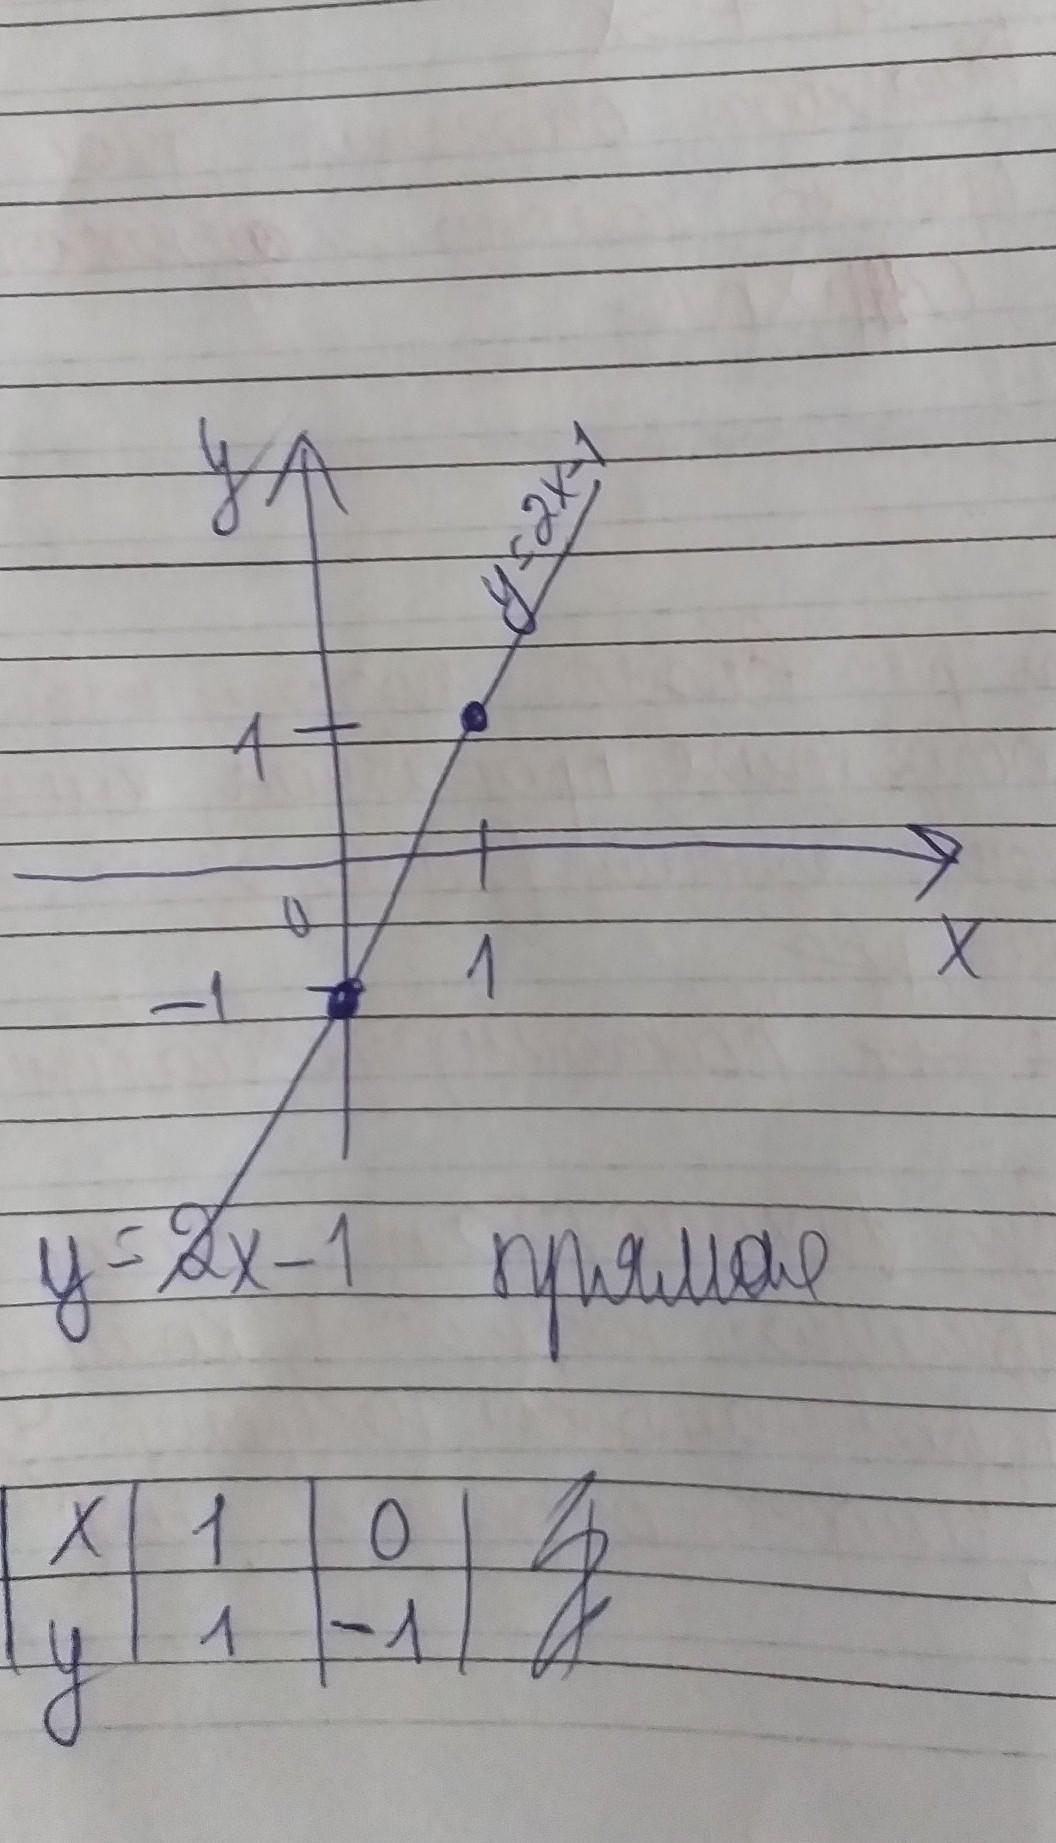 y
y=2x-1
1
0
1
x
-1
y=2x-1 прямая
x 1 0
y 1 -1